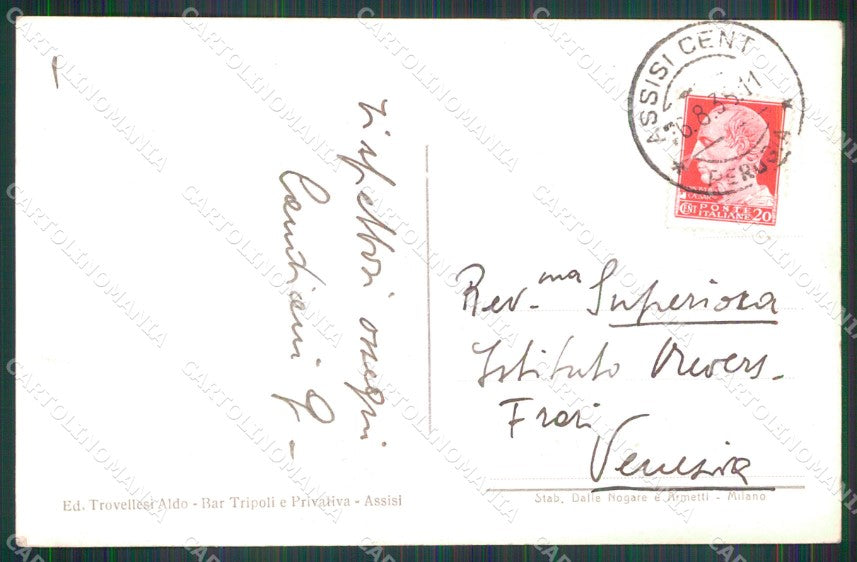 rispettosi ossequi
Candiani G -
ASSISI CENT
*6.8.35.11 *
PERUGIA
CESARE
CENT POSTE 20
ITALIANE
Rev.ma Superiora
Istituto
Frari
Venezia
Ed. Trovellesi Aldo - Bar Tripoli e Privativa - Assisi
Stab. Dalle Nogare e Armetti - Milano
CARTOLINOMANIA